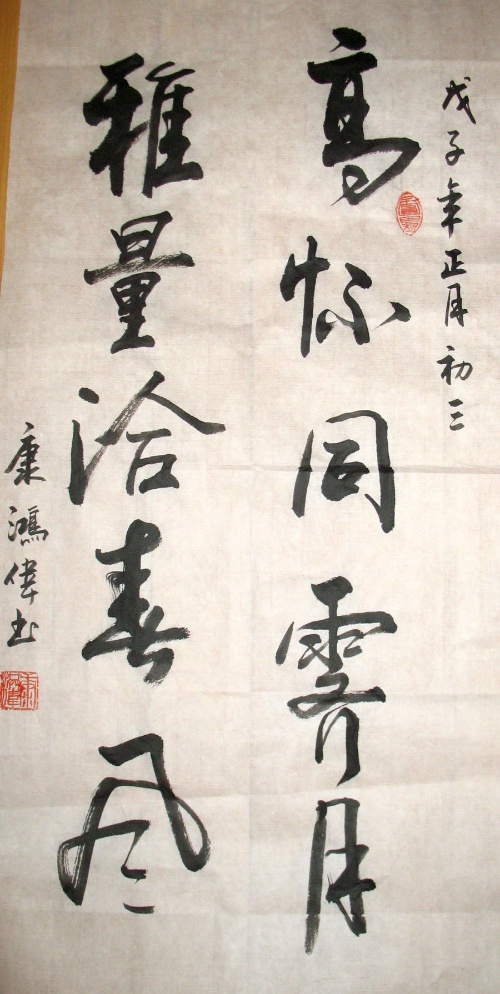 戊子年正月初三
高怀同霁月
雅量洽春风
康鴻偉书